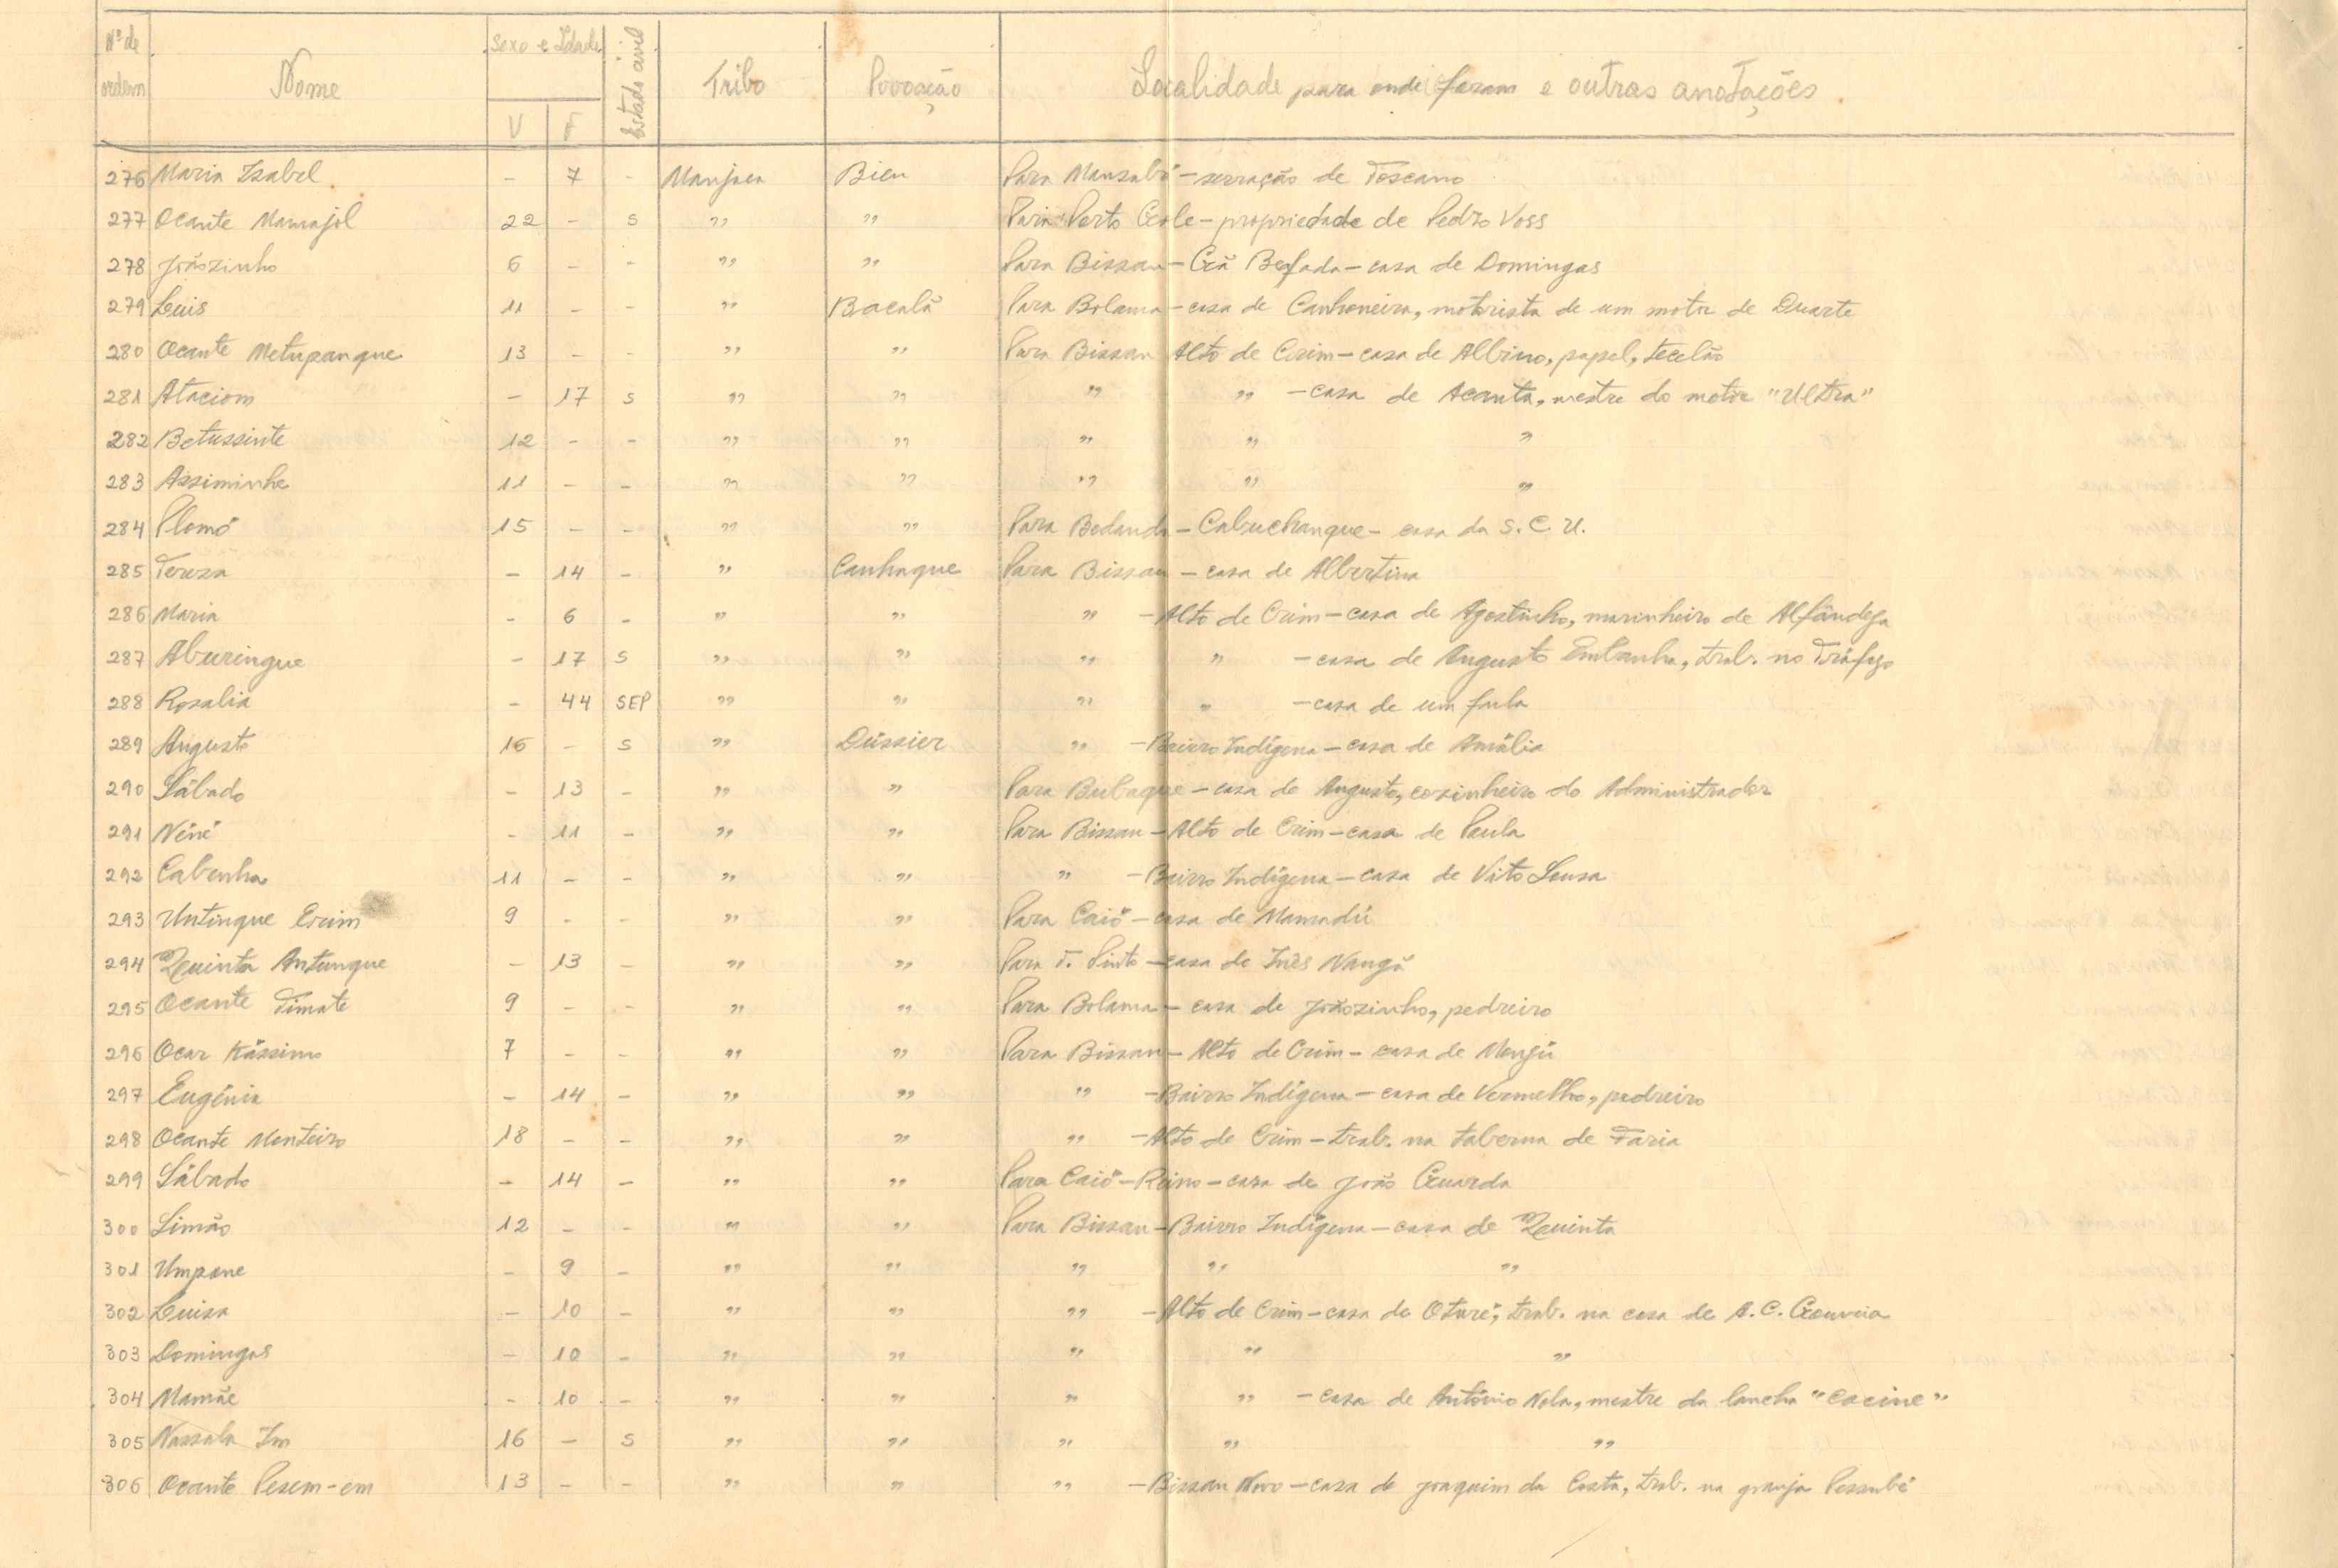 Nº de ordem Nome Sexo e Idade V F Estado civil Tribo Povoação Localidade para onde foram e outras anotações
276 Maria Izabel - 7 - Manjaca Bieu Para Mansabá - serração de Toscano
277 Ocante Mamajol 22 - S " " Para Porto Gole - propriedade de Pedro Voss
278 Joãozinho 6 - - " " Para Bissau - Gã Beafada - casa de Domingas
279 Luis 11 - - " Bacalã Para Bolama - casa de Canhoneira, motorista de um motor de Duarte
280 Ocante Metupanque 13 - - " " Para Bissau Alto de Crim - casa de Albino, papel, tecelão
281 Ataciom - 17 S " " " " - casa de Acanta, mestre do motor "Ultra"
282 Betussinte 12 - - " " " " "
283 Assiminhe 11 - - " " " " "
284 Plomó 15 - - " " Para Bedanda - Cabuchanque - casa da S. C. U.
285 Tereza - 14 - " Canhaque Para Bissau - casa de Albertina
286 Maria - 6 - " " " - Alto de Crim - casa de Agostinho, marinheiro de Alfândega
287 Aburingue - 17 S " " " " - casa de Augusto Embanha, trab. no Tráfego
288 Rosalia - 44 SEP " " " " - casa de um fula
289 Augusto 16 - S " Dussier " - Bairro Indígena - casa de Amália
290 Sábado - 13 - " " Para Bubaque - casa de Augusto, cozinheiro do Administrador
291 Néné - 11 - " " Para Bissau - Alto de Crim - casa de Paula
292 Cabenha 11 - - " " " - Bairro Indígena - casa de Vito Sousa
293 Untinque Crim 9 - - " " Para Caió - casa de Mamadú
294 Quinta Antunque - 13 - " " Para T. Pinto - casa de Inês Nangã
295 Ocante Timate 9 - - " " Para Bolama - casa de Joãozinho, pedreiro
296 Ocar Kássimo 7 - - " " Para Bissau - Alto de Crim - casa de Mengú
297 Eugénia - 14 - " " " - Bairro Indígena - casa de Vermelho, pedreiro
298 Ocante Monteiro 18 - - " " " - Alto de Crim - trab. na taberna de Faria
299 Sábado - 14 - " " Para Caió - Reino - casa de João Guarda
300 Simão 12 - - " " Para Bissau - Bairro Indígena - casa de Quinta
301 Umpane - 9 - " " " " "
302 Luisa - 10 - " " " - Alto de Crim - casa de Oturé, trab. na casa de A. C. Gouveia
303 Domingas - 10 - " " " " "
304 Mamãe - 10 - " " " " - casa de António Nola, mestre da lancha "Cacine"
305 Nassala Im 16 - S " " " " "
306 Ocante Pesem-em 13 - - " " " - Bissau Novo - casa de Joaquim da Costa, trab. na granja Pessubé